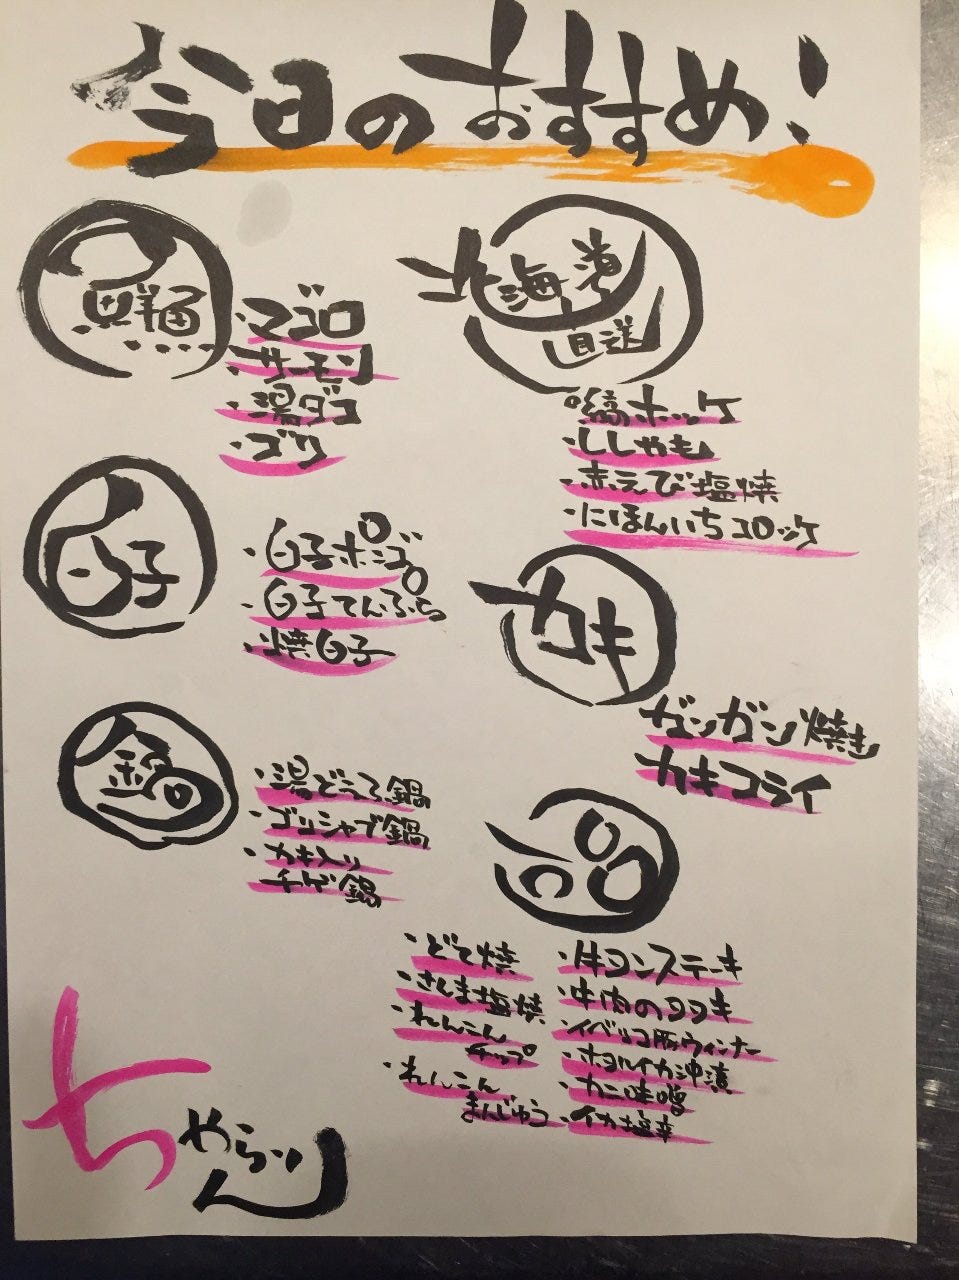 今日のおすすめ!
鮮魚
・マグロ
・サーモン
・湯ダコ
・ブリ
北海道
直送
・縞ホッケ
・ししゃも
・赤えび塩焼
・にほんいちコロッケ
白子
・白子ポンズ
・白子てんぷら
・焼白子
カキ
ガンガン焼き
カキフライ
鍋
・湯どうふ鍋
・ブリシャブ鍋
・カキ入り
チゲ鍋
一品
・どて焼
・さんま塩焼
・れんこん
チップ
・れんこん
まんじゅう
・牛タンステーキ
・牛肉のタタキ
・イベリコ豚ウィンナー
・ホタルイカ沖漬
・カニ味噌
・イカ塩辛
ちゃらりん